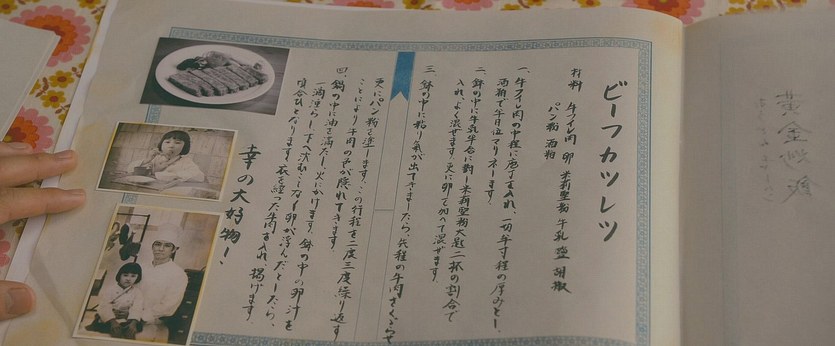 ビーフカツレツ
材料 牛フィレ肉 卵 米利堅粉 牛乳 塩 胡椒
パン粉 酒粕
一、牛フィレ肉の中程に庖丁を入れ、一切年寸程の厚みとし、
酒粕で半日位マリネーます。
二、鉢の中に牛乳半合に對し米利堅粉大匙二杯の割合で
入れ、よく混ぜます。更に卵を加へて混ぜます。
三、鉢の中に粘り気が出てきましたら、先程の牛肉をくぐらせ
更にパン粉を塗します。この行程を二度三度繰り返す
ことにより牛肉の色が隠れてきます。
四、鍋の中に油を満たし、火にかけます。鉢の中の卵汁を
一滴漂らし、下へ沈むことなし卵が浮んだとしたら、
頃合ひとなります。衣を纏った牛肉を入れ、揚げます。
幸の大好物!
黄金